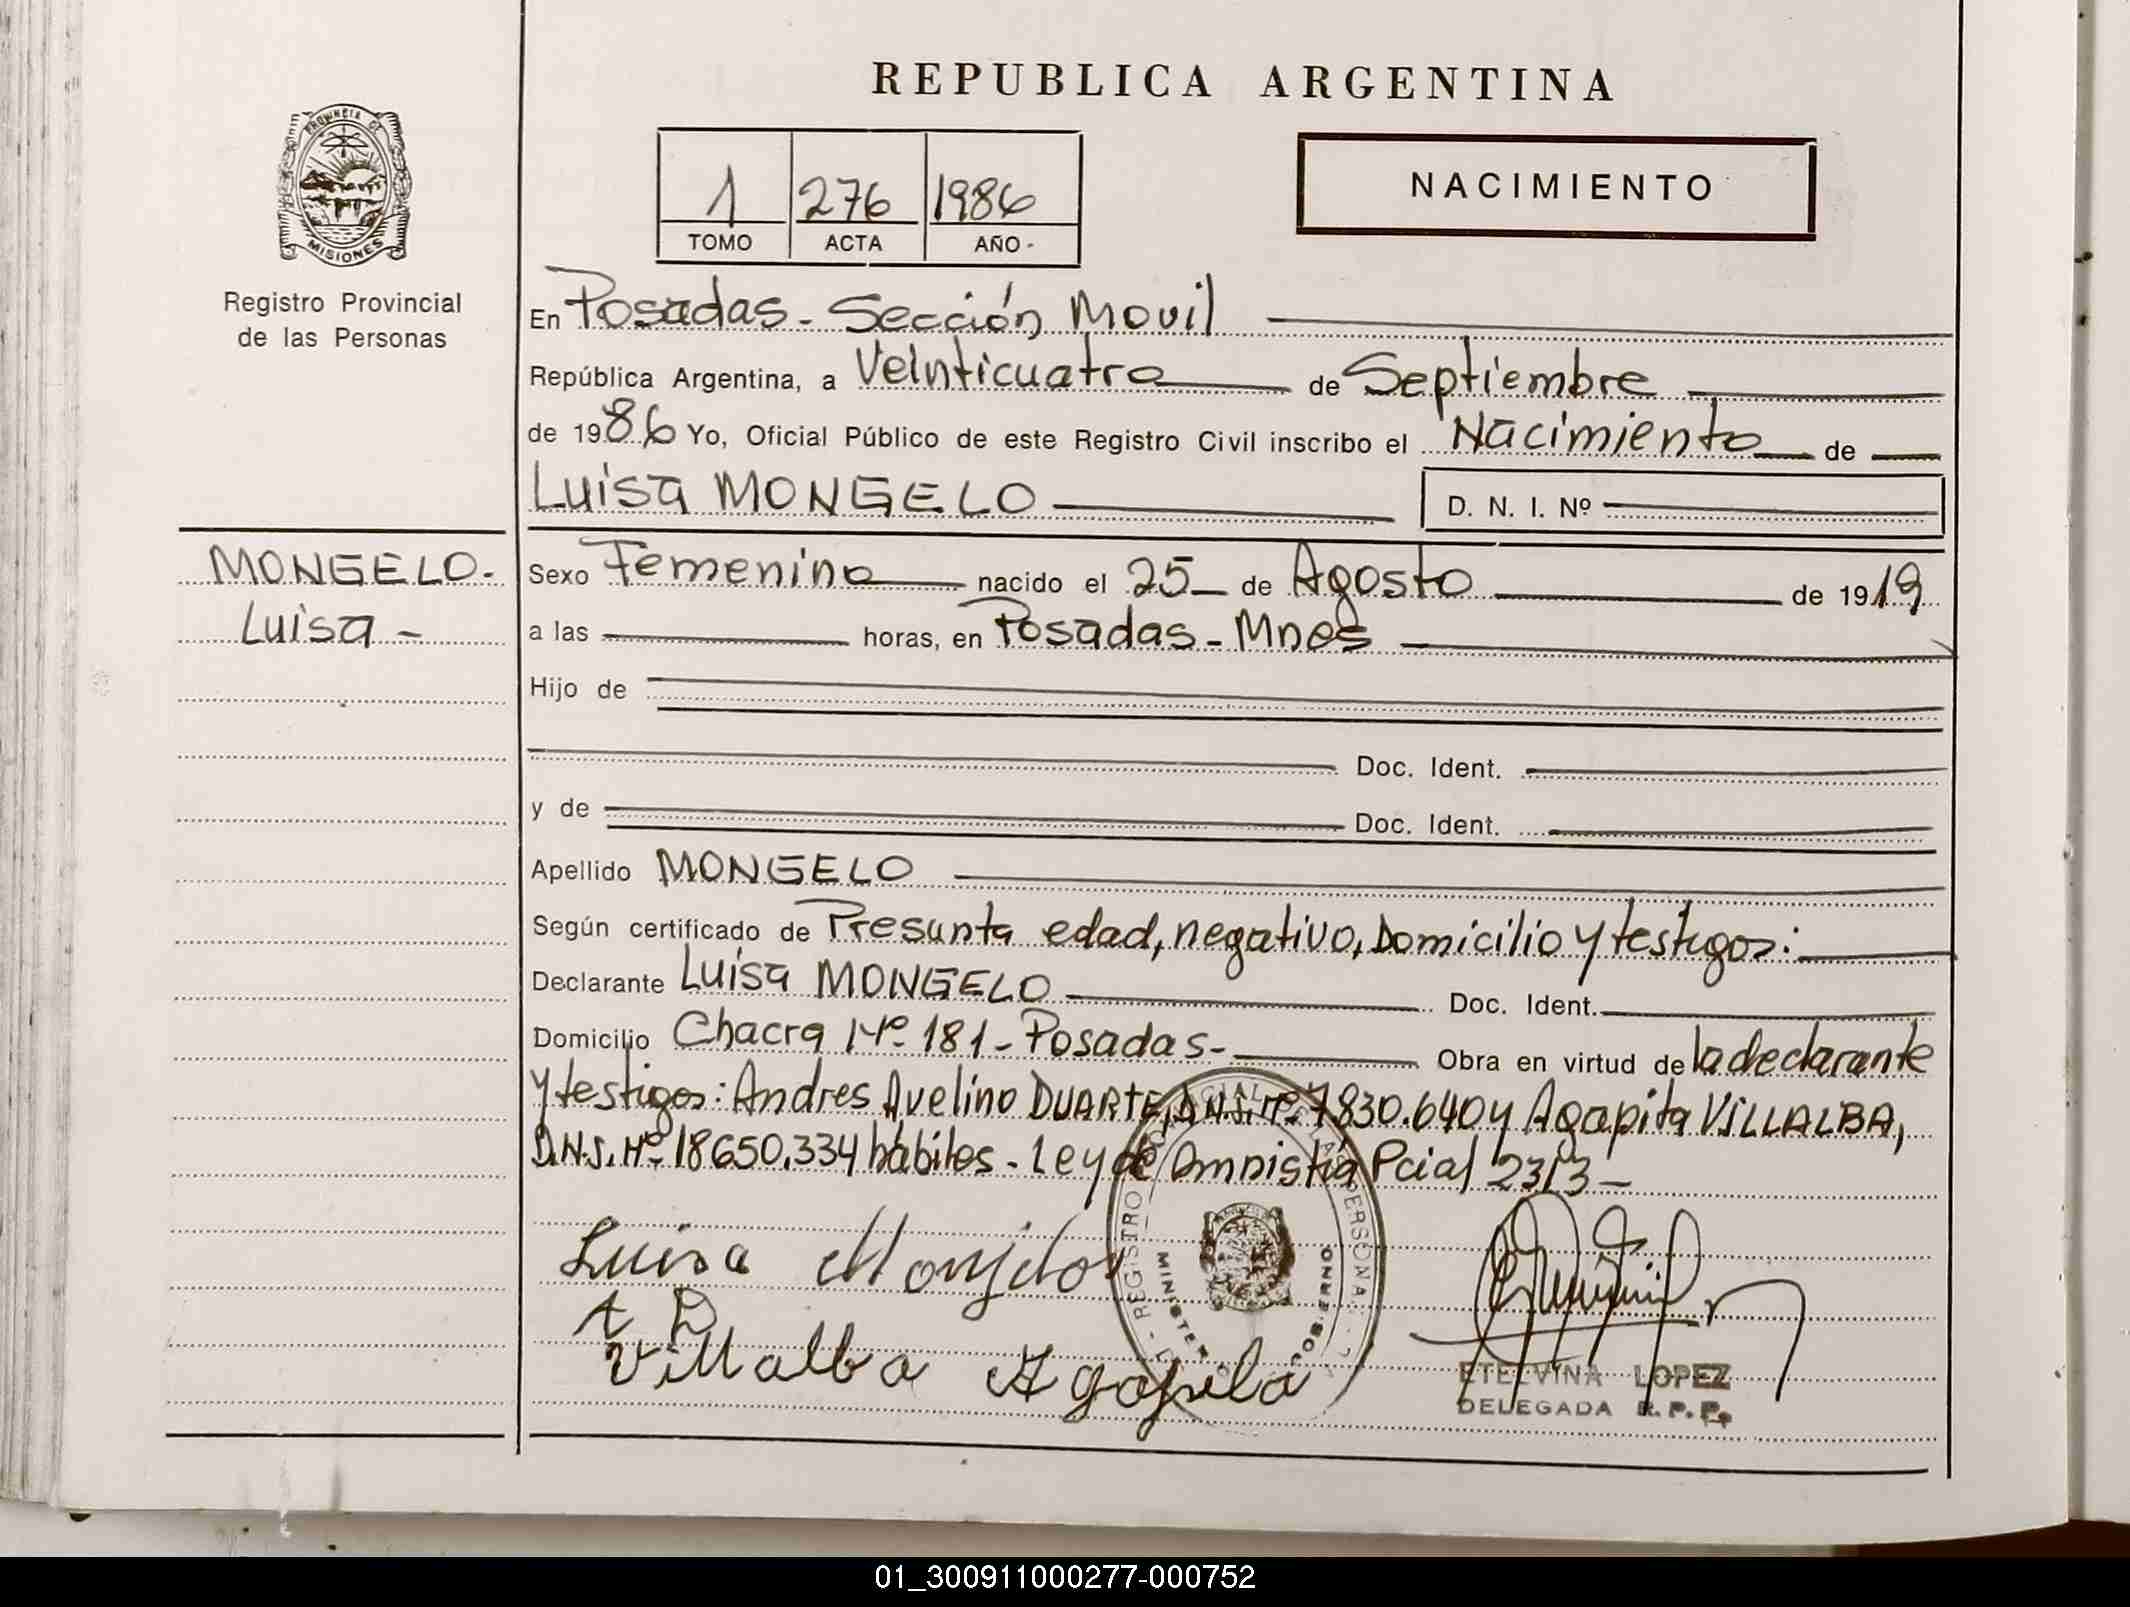 REPUBLICA ARGENTINA
PROVINCIA DE
MISIONES
Registro Provincial
de las Personas
1 276 1986
TOMO ACTA AÑO
NACIMIENTO
En Posadas - Sección Movil
República Argentina, a Veinticuatro de Septiembre
de 1986 Yo, Oficial Público de este Registro Civil inscribo el Nacimiento de
Luisa MONGELO D. N. I. Nº
MONGELO.
Luisa -
Sexo Femenino nacido el 25 de Agosto de 1919
a las horas, en Posadas - Mnes
Hijo de
Doc. Ident.
y de Doc. Ident.
Apellido MONGELO
Según certificado de Presunta edad, negativo, Domicilio y testigos:
Declarante Luisa MONGELO Doc. Ident.
Domicilio Chacra Nº 181 - Posadas - Obra en virtud de la declarante
y testigos: Andres Avelino DUARTE, D.N.I. Nº 7830.640 y Agapita VILLALBA,
D.N.I. Nº 18650.334 hábiles - Ley de Amnistía Pcial 2313 -
Luisa
A D
Villalba Agapita
ETELVINA LOPEZ
DELEGADA R. P. P.
01_300911000277-000752